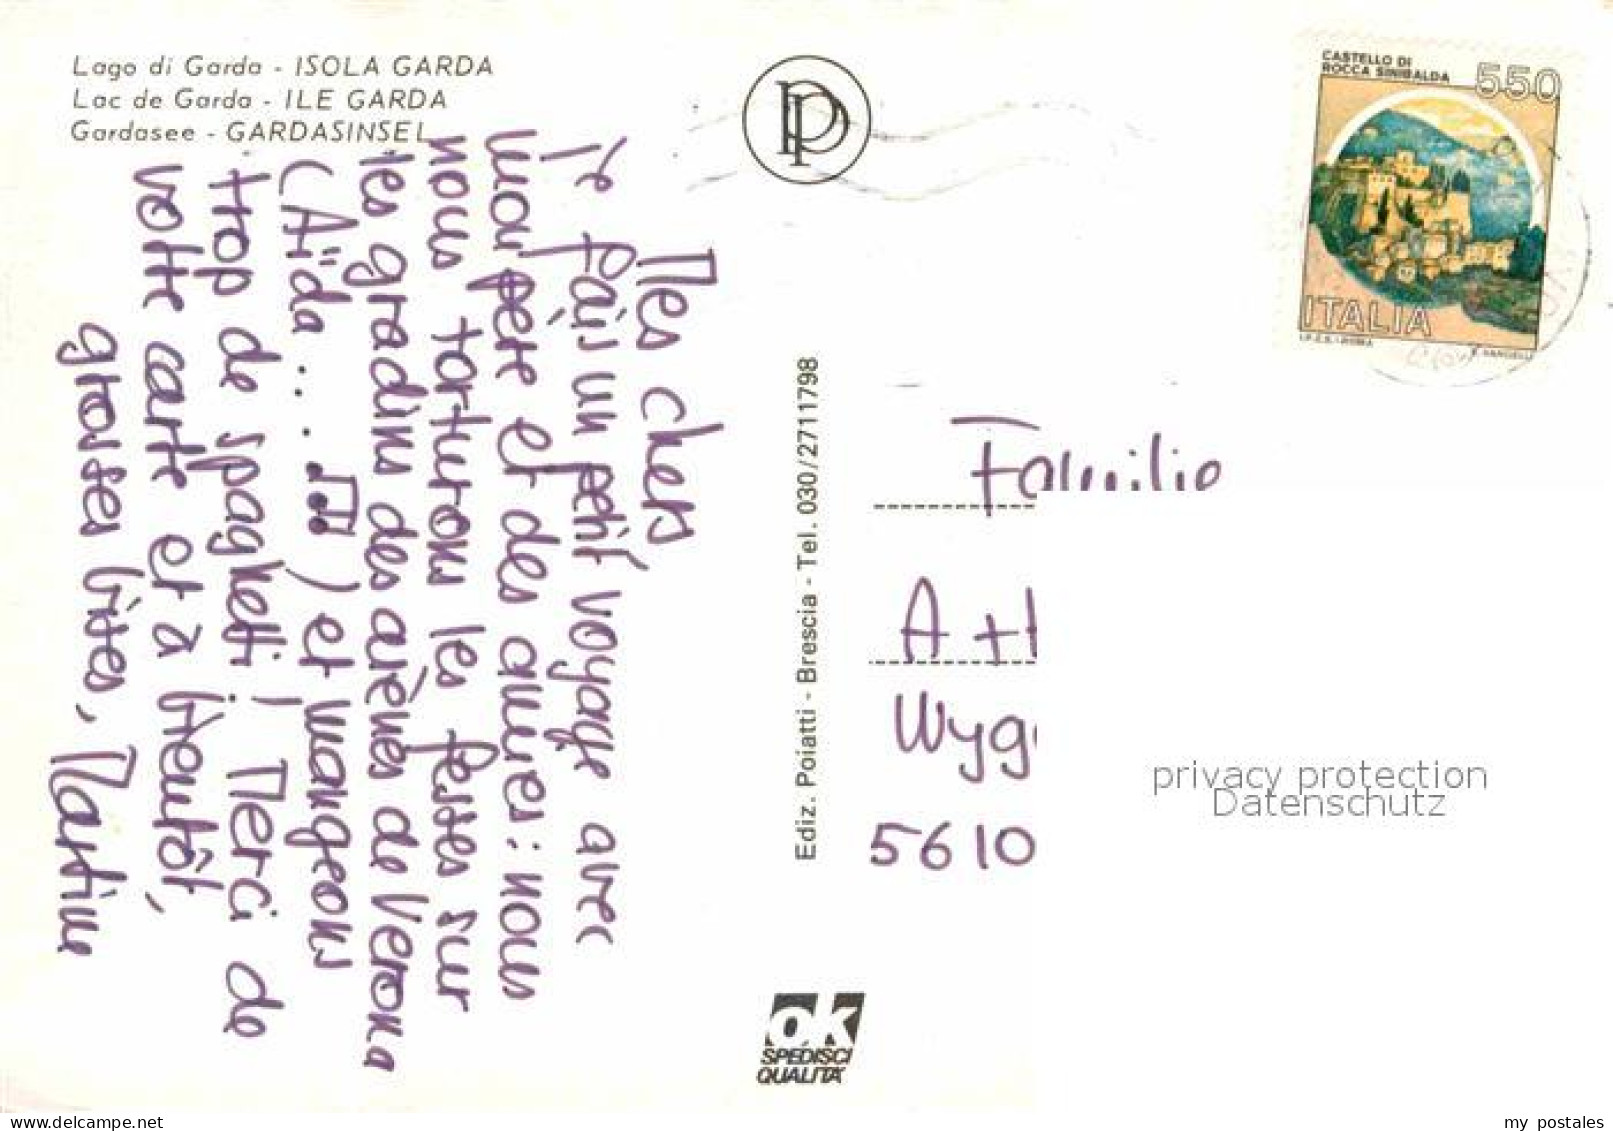 Lago di Garda - ISOLA GARDA
Lac de Garda - ILE GARDA
Gardasee - GARDASINSEL
Mes chers,
Je fais un petit voyage avec
mon père et des amies : nous
nous torturons les fesses sur
les gradins des arènes de Verona
(Aïda.... ) et mangeons
trop de spaghetti ! Merci de
votre carte et à bientôt,
grosses bises, Martine
Ediz. Poiatti - Brescia - Tel. 030/2711798
PP
CASTELLO DI
ROCCA SINIBALDA
550
ITALIA
I.P.Z.S. - ROMA
Familie
A
Wygg
5610
privacy protection
Datenschutz
OK
SPEDISCI
QUALITÀ
www.delcampe.net
my_postales